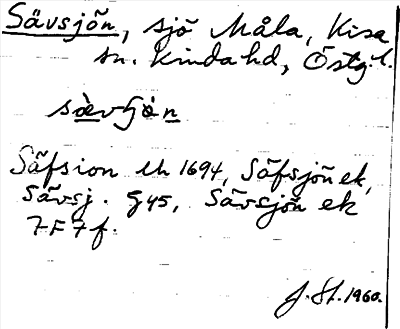 Sävsjön, sjö Måla, Kisa
sn. Kinda hd, Östgöt.
sävʃön
Säfsion lk 1694, Säfsjön ek,
Sävsj. G45, Sävsjön ek
7F7f.
J. St. 1960.